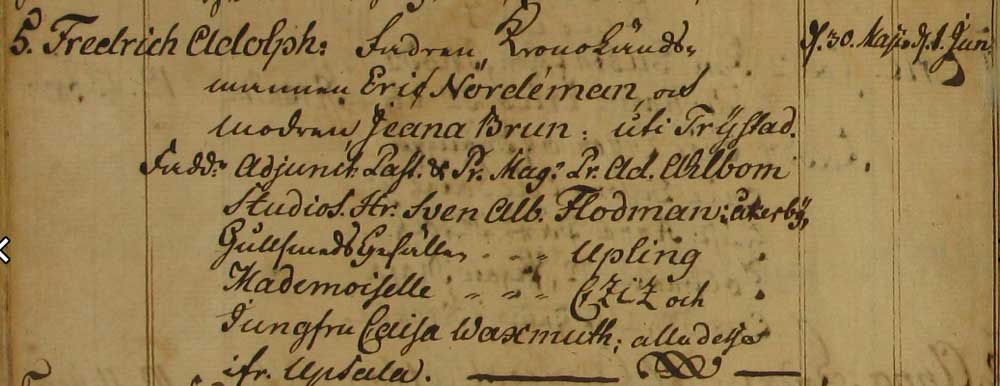 5. Fredrich Adolph: Fadren Kronoländs- d. 30. Maji. d. 1. Jun
mannen Eric Nordeman, och
modren Jeana Brun: uti Trÿstad.
Fadd: Adjunct. Past. & Pr. Mag: Pr. Ad. Ahlbom
Studios. Hr. Sven Alb. Flodman: åkerbÿ,
Gullsmeds Gesällen - - - Upling
Mademoiselle " " " CZiZ och
Jungfru Caisa Waxmuth; alla dessa
ifr. Upsala.